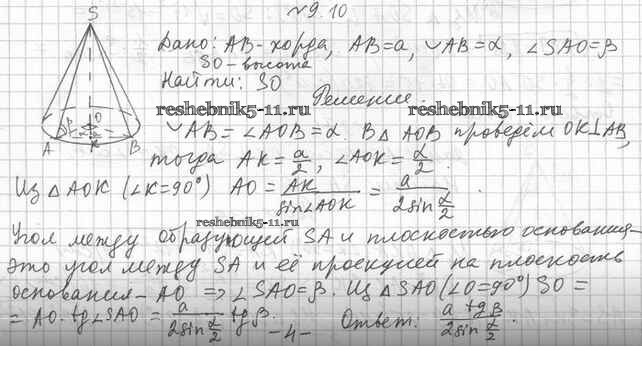 №9.10
S
Дано: AB - хорда, AB=a, ◡AB=α, ∠SAO=β
SO - высота
Найти: SO
Решение
reshebnik5-11.ru reshebnik5-11.ru
◡AB = ∠AOB = α. В △ AOB проведём OK⊥AB,
β O
A K B
тогда AK = a/2, ∠AOK = α/2.
Из △ AOK (∠K=90°) AO = AK/sin∠AOK = a/(2sin α/2).
reshebnik5-11.ru
Угол между образующей SA и плоскостью основания -
это угол между SA и её проекцией на плоскость
основания - AO ⇒ ∠SAO=β. Из △ SAO (∠O=90°) SO =
= AO · tg∠SAO = a/(2sin α/2) tg β. Ответ: a tg β/(2sin α/2).
-4-